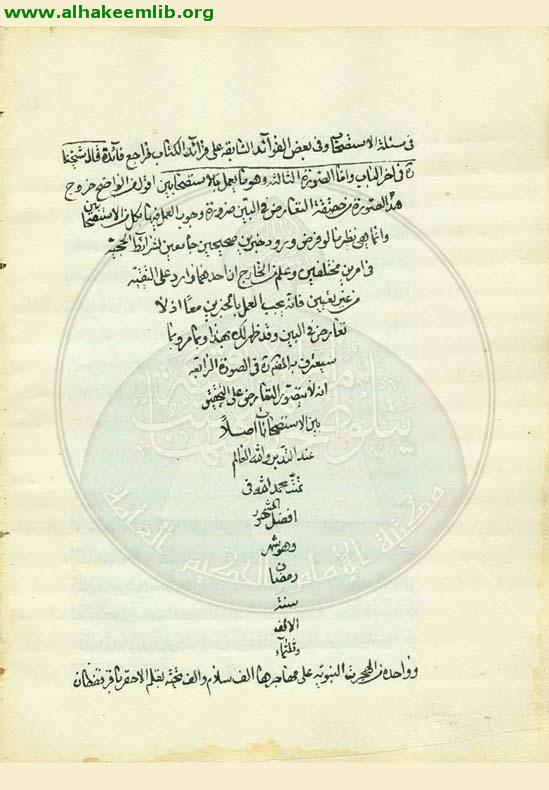 www.alhakeemlib.org
فى مسئلة الاستصحاب وفى بعض الفرآئد السابقه على فرائد الكتاب فراجع فآئدة قال شيخنا
ره فى اخر الباب وامّا الصورة الثالثه وهو ما يعمل بالاستصحابين اقول من الواضح خروج
هذه الصورة من حقيقة التعارض فى البين ضرورة وجوب العمل فيها بكل من الاستصحابين
وانّما هى نظير ما لو فرض ورود خبرين صحيحين جامعين لشرائط الحجية
فى امرين مختلفين وعلم من الخارج ان احدهما وارد على التقيّه
من غير تعيين فانّه يجب العمل بالخبرين معًا اذ لا
تعارض فى البين وقد ظهر لك بهذا وبما مرّ وبما
سيعترف به المقرره فى الصورة الرابعه
انه لا يتصوّر التعارض على التحقيق
بين الاستصحابات اصلاً
عند التدبر والله العالم
تمّت بحمد الله فى
افضل الشهور
وهو شهر
رمضان
سنة
الالف
وثلثمأة
وواحده من الهجرت النبويه على مهاجرها الف سلام والف تحيّه بقلم الاحقر
مكتبة الإمام الحكيم العامة